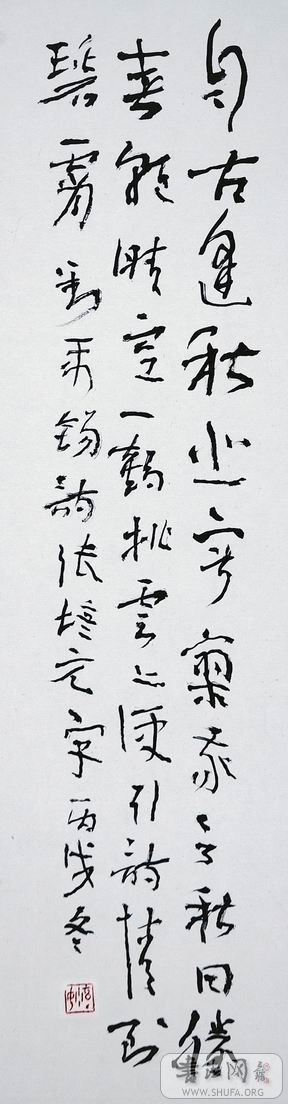 自古逢秋悲寂寥我言秋日勝
春朝晴空一鶴排雲上便引詩情到
碧霄劉禹錫詩張培元字丙戌冬
书法网
WWW.SHUFA.ORG